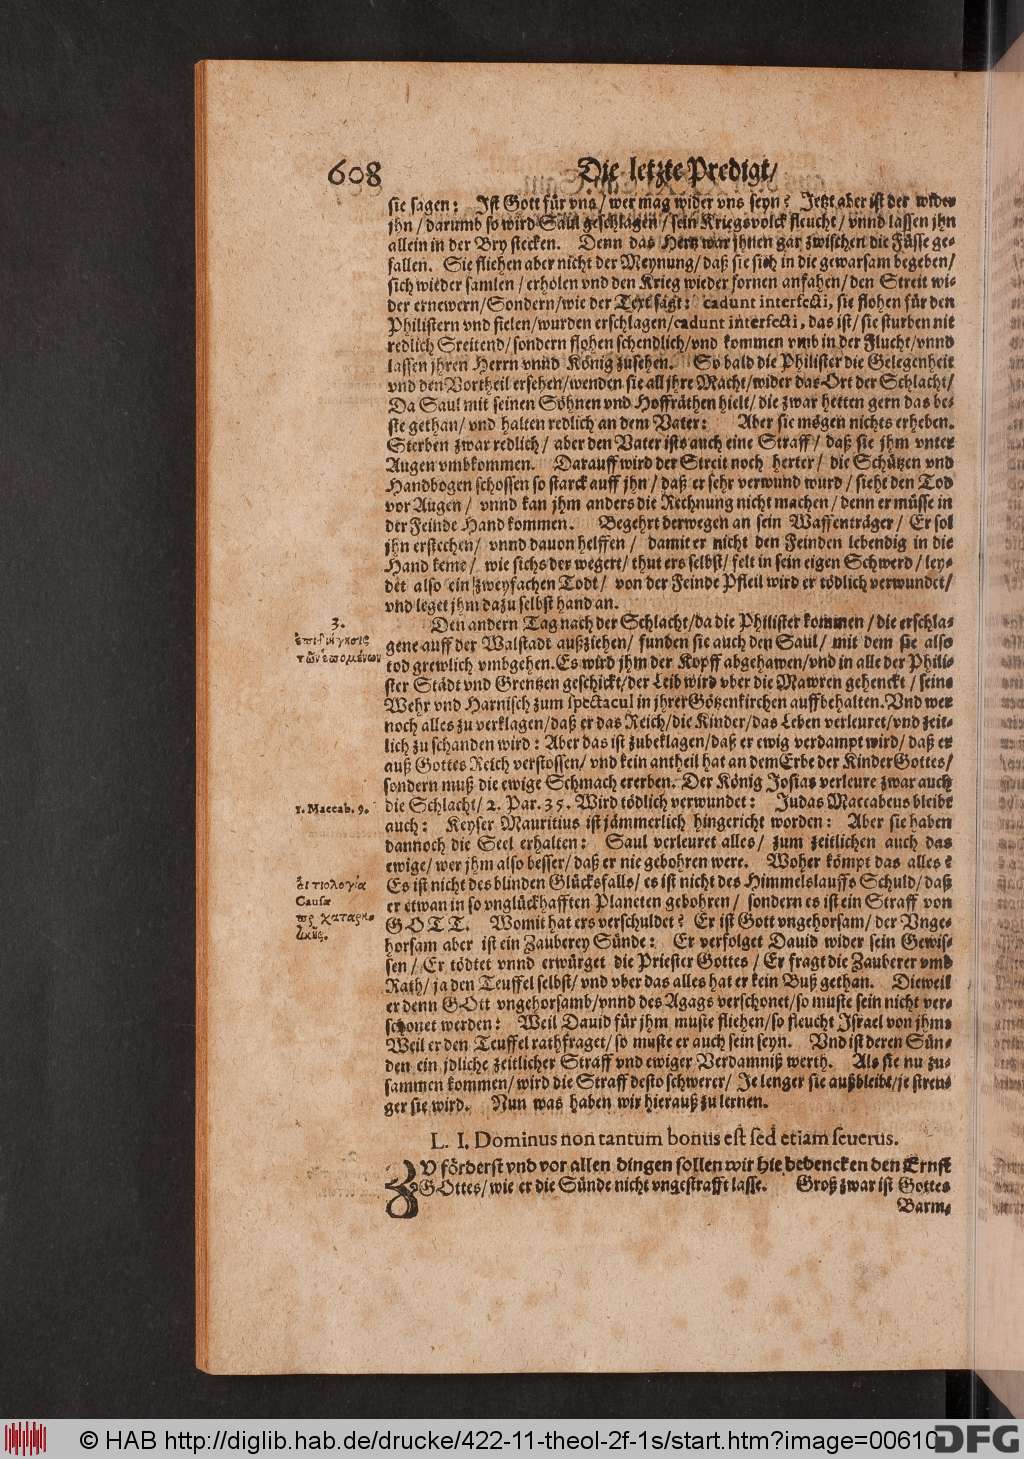 608
Die letzte Predigt/
sie sagen: Ist Gott für vns/wer mag wider vns seyn? Jetzt aber ist der wider
jhn/darumb so wird Saul geschlagen/sein Kriegsvolck fleucht/vnnd lassen jhn
allein in der Bry stecken. Denn das Hertz war jhnen gar zwischen die Füsse ge-
fallen. Sie fliehen aber nicht der Meynung/daß sie sich in die gewarsam begeben/
sich wieder samlen/erholen vnd den Krieg wieder fornen anfahen/den Streit wi-
der ernewern/Sondern/wie der Text sagt: cadunt interfecti, sie flohen für den
Philistern vnd fielen/wurden erschlagen/cadunt interfecti, das ist/sie sturben nit
redlich Sreitend/sondern flohen schendlich/vnd kommen vmb in der Flucht/vnnd
lassen jhren Herrn vnnd König zusehen. So bald die Philister die Gelegenheit
vnd den Vortheil ersehen/wenden sie all jhre Macht/wider das Ort der Schlacht/
Da Saul mit seinen Söhnen vnd Hoffräthen hielt/die zwar hetten gern das be-
ste gethan/vnd halten redlich an dem Vater: Aber sie mögen nichtes erheben.
Sterben zwar redlich/aber den Vater ists auch eine Straff/daß sie jhm vnter
Augen vmbkommen. Darauff wird der Streit noch herter/die Schützen vnd
Handbogen schossen so starck auff jhn/daß er sehr verwund wurd/sieht den Tod
vor Augen/vnnd kan jhm anders die Rechnung nicht machen/denn er müsse in
der Feinde Hand kommen. Begehrt derwegen an sein Waffenträger/Er sol
jhn erstechen/vnnd dauon helffen/damit er nicht den Feinden lebendig in die
Hand keme/wie sichs der wegert/thut ers selbst/felt in sein eigen Schwerd/ley-
det also ein zweyfachen Todt/von der Feinde Pfleil wird er tödlich verwundet/
vnd leget jhm dazu selbst hand an.
3.
ἐπιδιήγησις
τῶν ἑπομένων
Den andern Tag nach der Schlacht/da die Philister kommen/die erschla-
gene auff der Walstadt außziehen/funden sie auch den Saul/mit dem sie also
tod grewlich vmbgehen. Es wird jhm der Kopff abgehawen/vnd in alle der Phili-
ster Städt vnd Grentzen geschickt/der Leib wird vber die Mawren gehenckt/seine
Wehr vnd Harnisch zum spectacul in jhrer Götzenkirchen auffbehalten. Vnd wer
noch alles zu verklagen/daß er das Reich/die Kinder/das Leben verleuret/vnd zeit-
lich zu schanden wird: Aber das ist zubeklagen/daß er ewig verdampt wird/daß er
auß Gottes Reich verstossen/vnd kein antheil hat an dem Erbe der Kinder Gottes/
sondern muß die ewige Schmach ererben. Der König Josias verleure zwar auch
1. Maccab. 9.
die Schlacht/2. Par. 35. Wird tödlich verwundet: Judas Maccabeus bleibt
auch: Keyser Mauritius ist jämmerlich hingericht worden: Aber sie haben
dannoch die Seel erhalten: Saul verleuret alles/zum zeitlichen auch das
ewige/wer jhm also besser/daß er nie gebohren were. Woher kömpt das alles?
αἰτιολογία
Causæ
Es ist nicht des blinden Glücksfalls/es ist nicht des Himmelslauffs Schuld/daß
er etwan in so vnglückhafften Planeten gebohren/sondern es ist ein Straff von
GOTT. Womit hat ers verschuldet? Er ist Gott vngehorsam/der Vnge-
horsam aber ist ein Zauberey Sünde: Er verfolget Dauid wider sein Gewis-
sen/Er tödtet vnnd erwürget die Priester Gottes/Er fragt die Zauberer vmb
Rath/ja den Teuffel selbst/vnd vber das alles hat er kein Buß gethan. Dieweil
er denn GOtt vngehorsamb/vnnd des Agags verschonet/so muste sein nicht ver-
schonet werden: Weil Dauid für jhm muste fliehen/so fleucht Israel von jhm:
Weil er den Teuffel rathfraget/so muste er auch sein seyn. Vnd ist deren Sün-
den ein jdliche zeitlicher Straff vnd ewiger Verdamniß werth. Als sie nu zu-
sammen kommen/wird die Straff desto schwerer/Je lenger sie außbleibt/je stren-
ger sie wird. Nun was haben wir hierauß zu lernen.
L. I. Dominus non tantum bonus est sed etiam seuerus.
ZV förderst vnd vor allen dingen sollen wir hie bedencken den Ernst
GOttes/wie er die Sünde nicht vngestrafft lasse. Groß zwar ist Gottes
Barm-
© HAB http://diglib.hab.de/drucke/422-11-theol-2f-1s/start.htm?image=00610
DFG